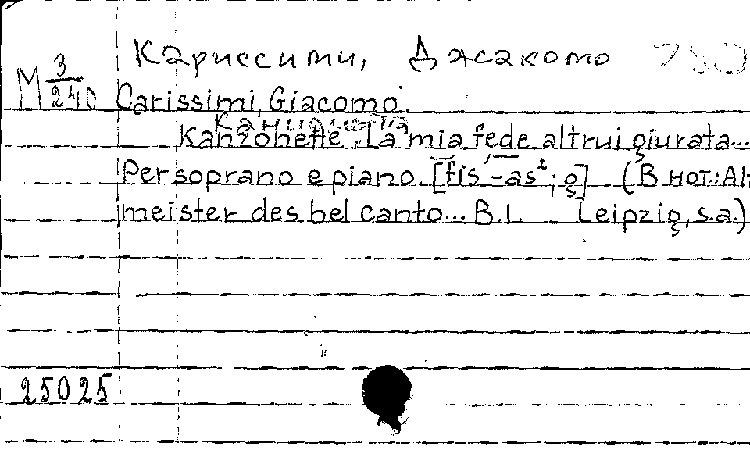 Кариссими, Джакомо
М 3/240 Carissimi, Giacomo.
Kanzonette „La mia fede altrui giurata...
Per soprano e piano. [fis'-as²; g] (В нот.: Alt-
meister des bel canto... B.I. Leipzig, s.a.)
25025